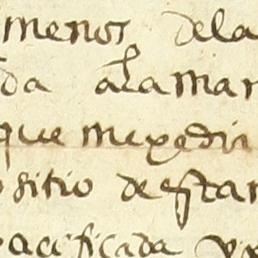 menos dela
da ala mar
que mexedia
sitio de estar
pacificada